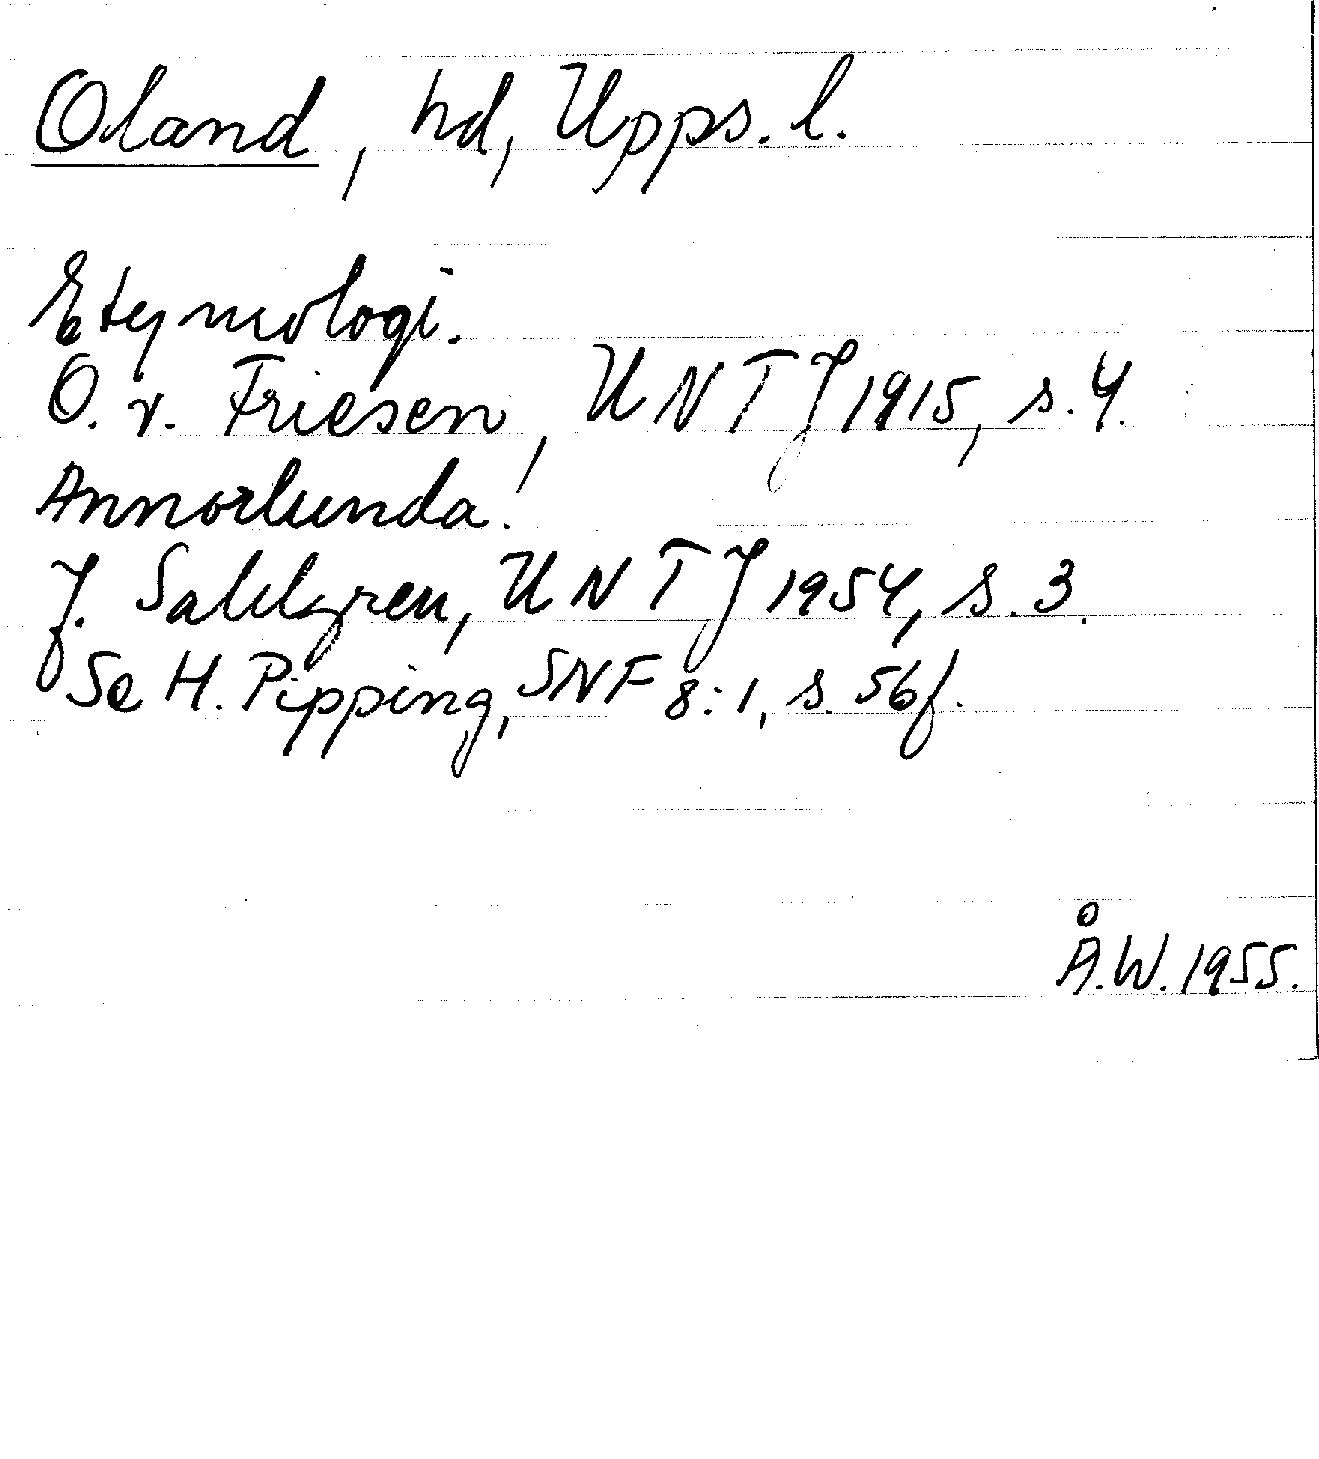 Oland, hd, Upps. l.
Etymologi.
O. v. Friesen, UNTJ 1915, s. 4.
Annorlunda!
J. Sahlgren, UNTJ 1954, s. 3.
Se H. Pipping, SNF 8:1, s. 56f.
Å.W. 1955.